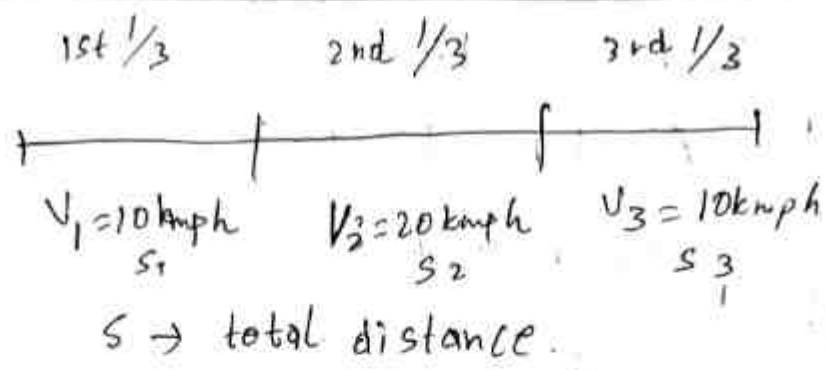 1st 1/3 2nd 1/3 3rd 1/3
V1=10kmph V2=20kmph V3=10kmph
S1 S2 S3
S → total distance.